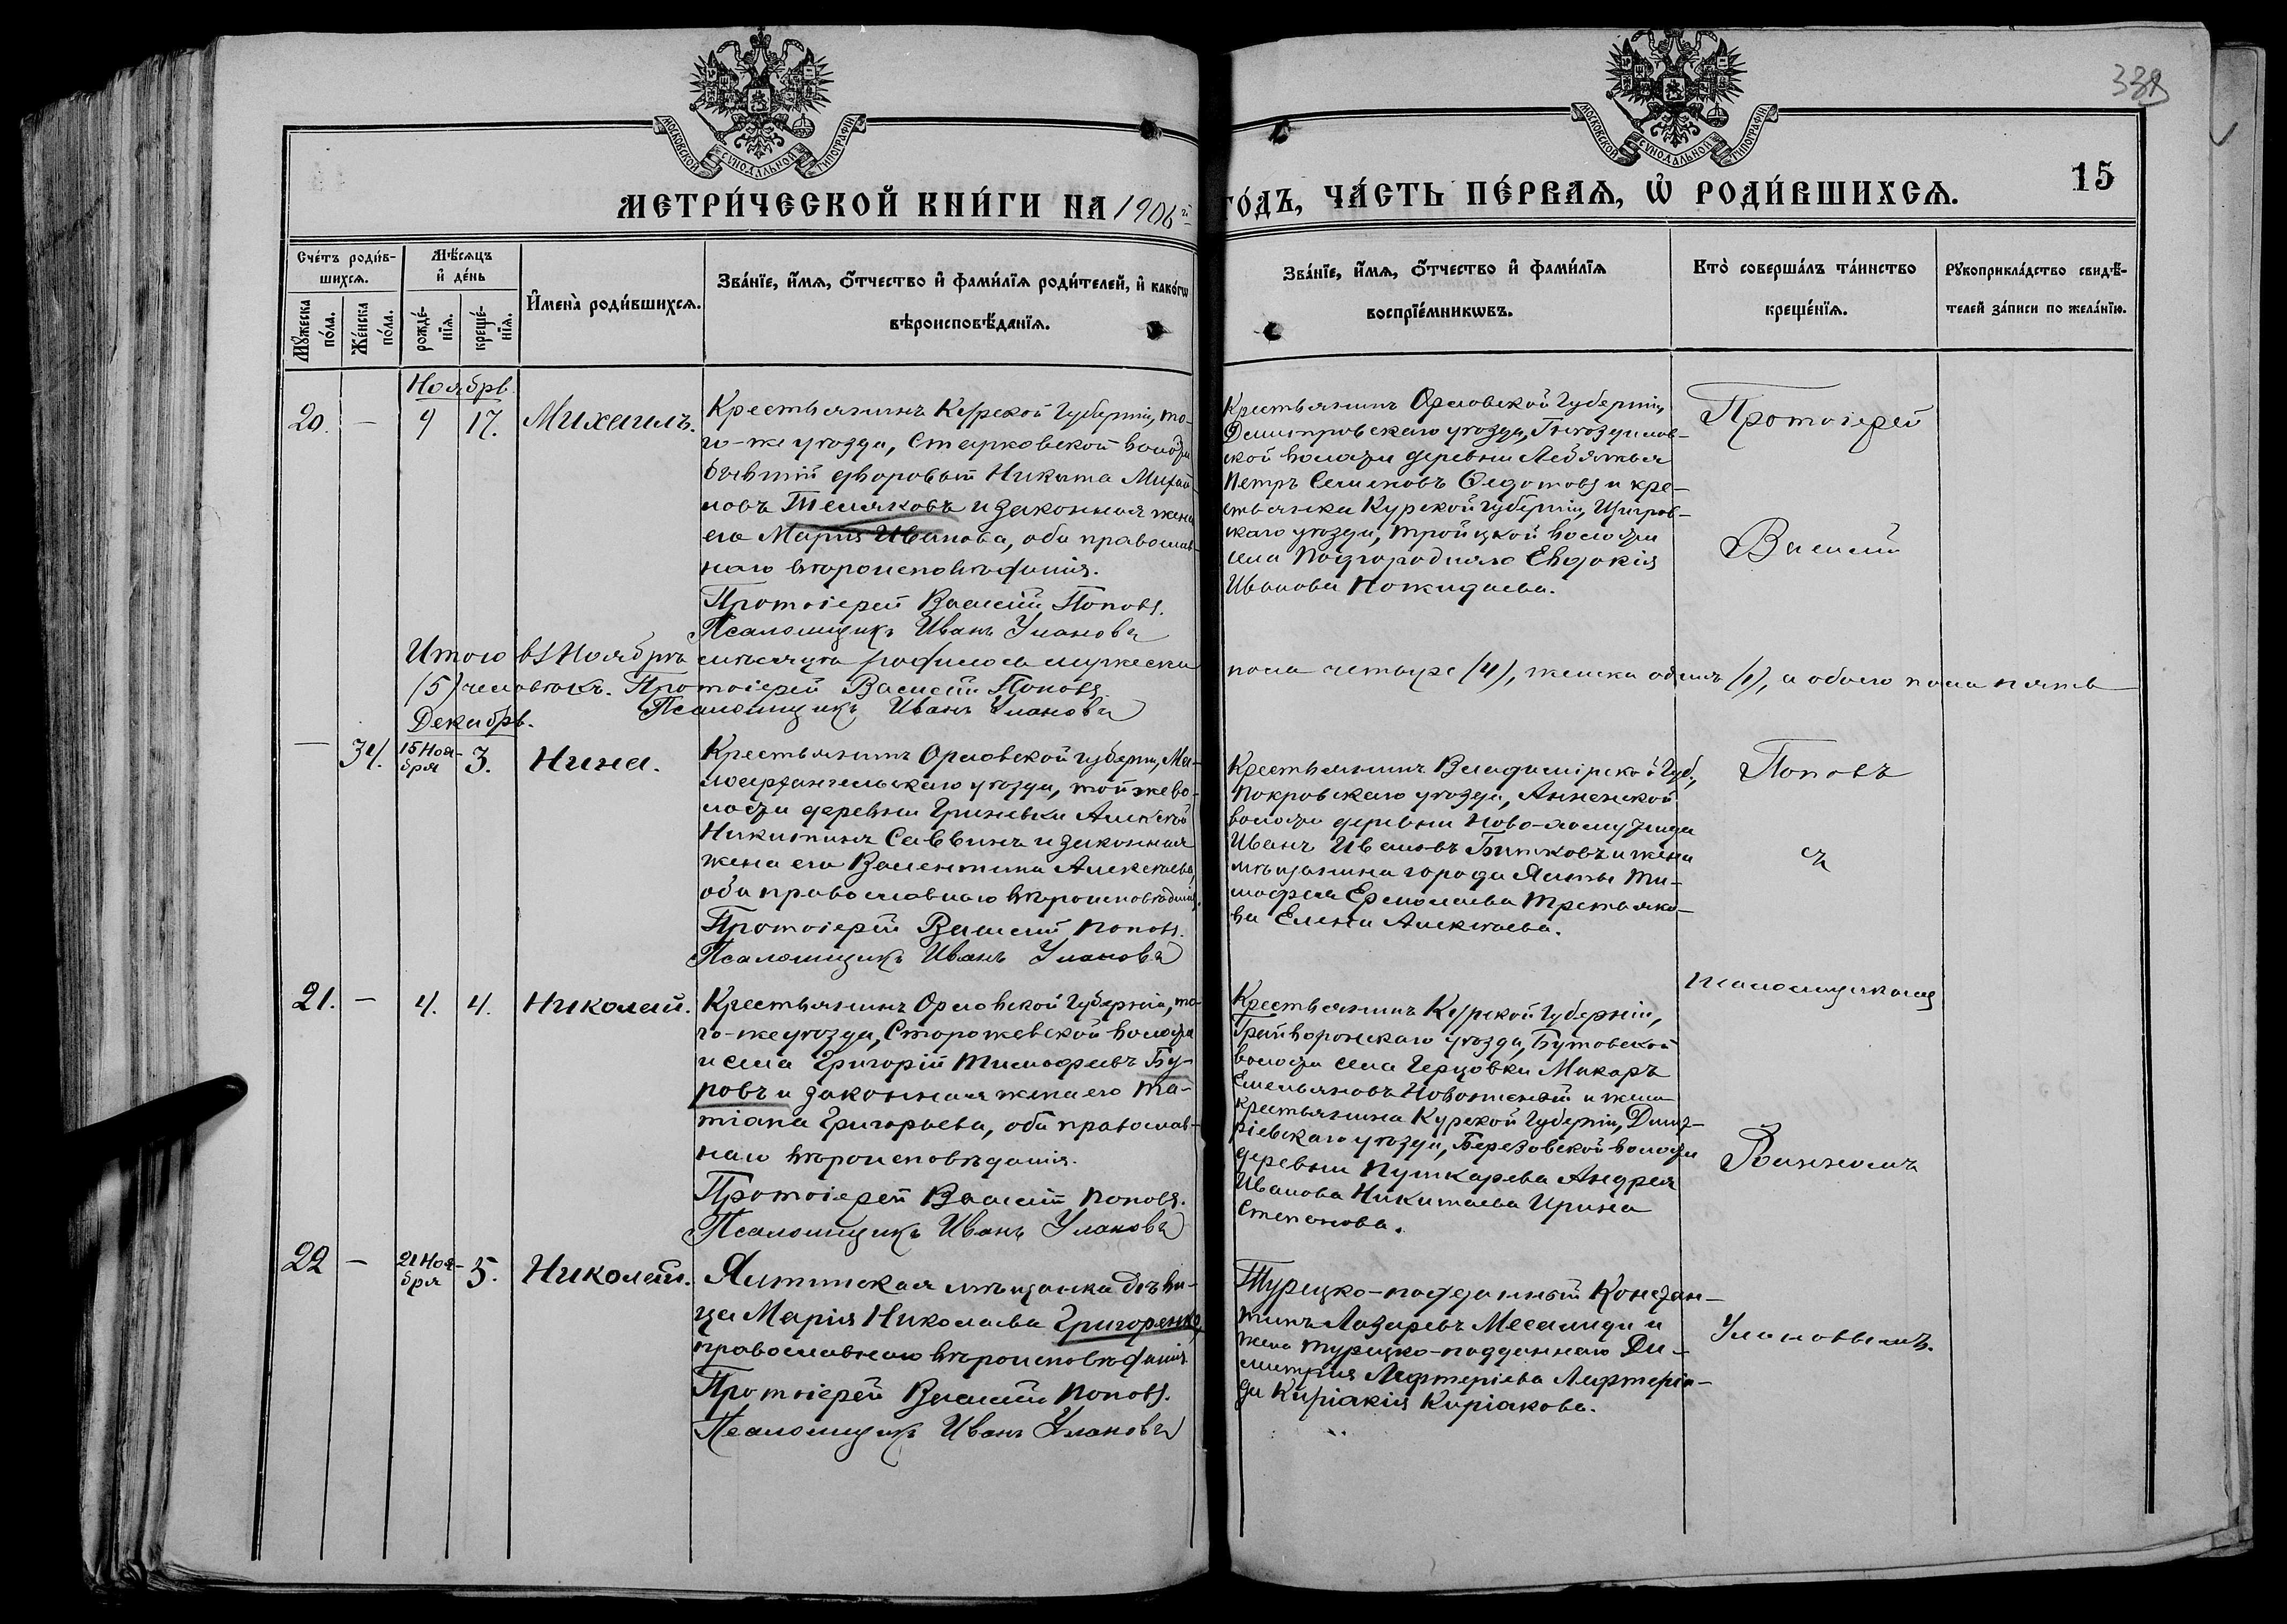 338
МОСКОВСКОЙ СѴНОДАЛЬНОЙ ТИПОГРАФІИ
МОСКОВСКОЙ СѴНОДАЛЬНОЙ ТИПОГРАФІИ
15
МЕТРИ́ЧЕСКОЙ КНИ́ГИ НА 1906 й
ГОДЪ, ЧА́СТЬ ПЕ́РВАѦ, Ѡ҆ РОДИ́ВШИХСѦ.
Сче́тъ роди́в-
шихсѧ.
Мꙋ́жеска по́ла.
Же́нска по́ла.
Мѣ́сѧцъ
и҆ де́нь
рожде́-
нїѧ.
креще́-
нїѧ.
И҆мена̀ роди́вшихсѧ.
Зва́нїе, и҆́мѧ, ѻ҆́тчество и҆ фами́лїѧ роди́телей, и҆ како́гѡ
вѣроисповѣ́данїѧ.
Зва́нїе, и҆́мѧ, ѻ҆́тчество и҆ фами́лїѧ
воспрїе́мникѡвъ.
Кто̀ соверша́лъ та́инство
креще́нїѧ.
Рꙋкоприкла́дство свидѣ́-
телей за́писи по жела́нїю.
Ноябрь
20. — 9 17. Михаилъ.
Крестьянинъ Курской Губерніи, то-
го-же уѣзда, Старковской волости
бывшій дворовый Никита Михай-
ловъ Теляковъ и законная жена
его Марія Иванова, оба православ-
наго вѣроисповѣданія.
Протоіерей Василій Поповъ.
Псаломщикъ Иванъ Улановъ
Крестьянинъ Орловской Губерніи,
Дмитровскаго уѣзда,
ской волости деревни Лебяжья
Петръ Семеновъ Федотовъ и кре-
стьянка Курской губерніи, Щигров-
скаго уѣзда, Тройцкой волости
села Подгородняго Евдокія
Иванова Пожидаева.
Протоіерей
Василій
Итого въ Ноябрѣ мѣсяцѣ родилось мужеска
пола четыре (4), женска одинъ (1), а обоего пола пять
(5) человѣкъ. Протоіерей Василій Поповъ.
Псаломщикъ Иванъ Улановъ
Декабрь.
— 34. 15 Ноя-
бря 3. Нина.
Крестьянинъ Орловской губерніи, Ма-
лоархангельскаго уѣзда, той же во-
лости деревни Гриневки Алексѣй
Никитинъ Саввинъ и законная
жена его Валентина Алексѣева,
оба православнаго вѣроисповѣданія.
Протоіерей Василій Поповъ.
Псаломщикъ Иванъ Улановъ
Крестьянинъ Владимірской Губ.,
Покровскаго уѣзда, Аннинской
волости деревни
Иванъ Ивановъ Битковъ и жена
мѣщанина города Ялты Ти-
мофея Ермолаева Третьяко-
ва Елена Алексѣева.
Поповъ
съ
21. — 4. 4. Николай.
Крестьянинъ Орловской Губерніи, то-
го-же уѣзда, Сторожевской волости
и села Григорій Тимофеевъ Бу-
ровъ и законная жена его Та-
тіана Григорьева, оба православ-
наго вѣроисповѣданія.
Протоіерей Василій Поповъ.
Псаломщикъ Иванъ Улановъ
Крестьянинъ Курской Губерніи,
Грайворонскаго уѣзда, Бутовской
волости села Герцовки Макаръ
Емельяновъ и жена
крестьянина Курской Губерніи, Дмит-
ріевскаго уѣзда, Березовской волости
деревни Пушкарева Андрея
Иванова Никитаева Ирина
Степанова.
псаломщикомъ
Иваномъ
22 — 21 Ноя-
бря 5. Николай.
Ялтинская мѣщанка дѣви-
ца Марія Николаева Григоренко,
православнаго вѣроисповѣданія.
Протоіерей Василій Поповъ.
Псаломщикъ Иванъ Улановъ
Турецко-подданный Констан-
тинъ Лазаревъ Месалиди и
жена турецко-подданнаго Ди-
митрія Лефтеріева Лефтеріа-
ди Киріакія Киріакова.
Улановымъ.